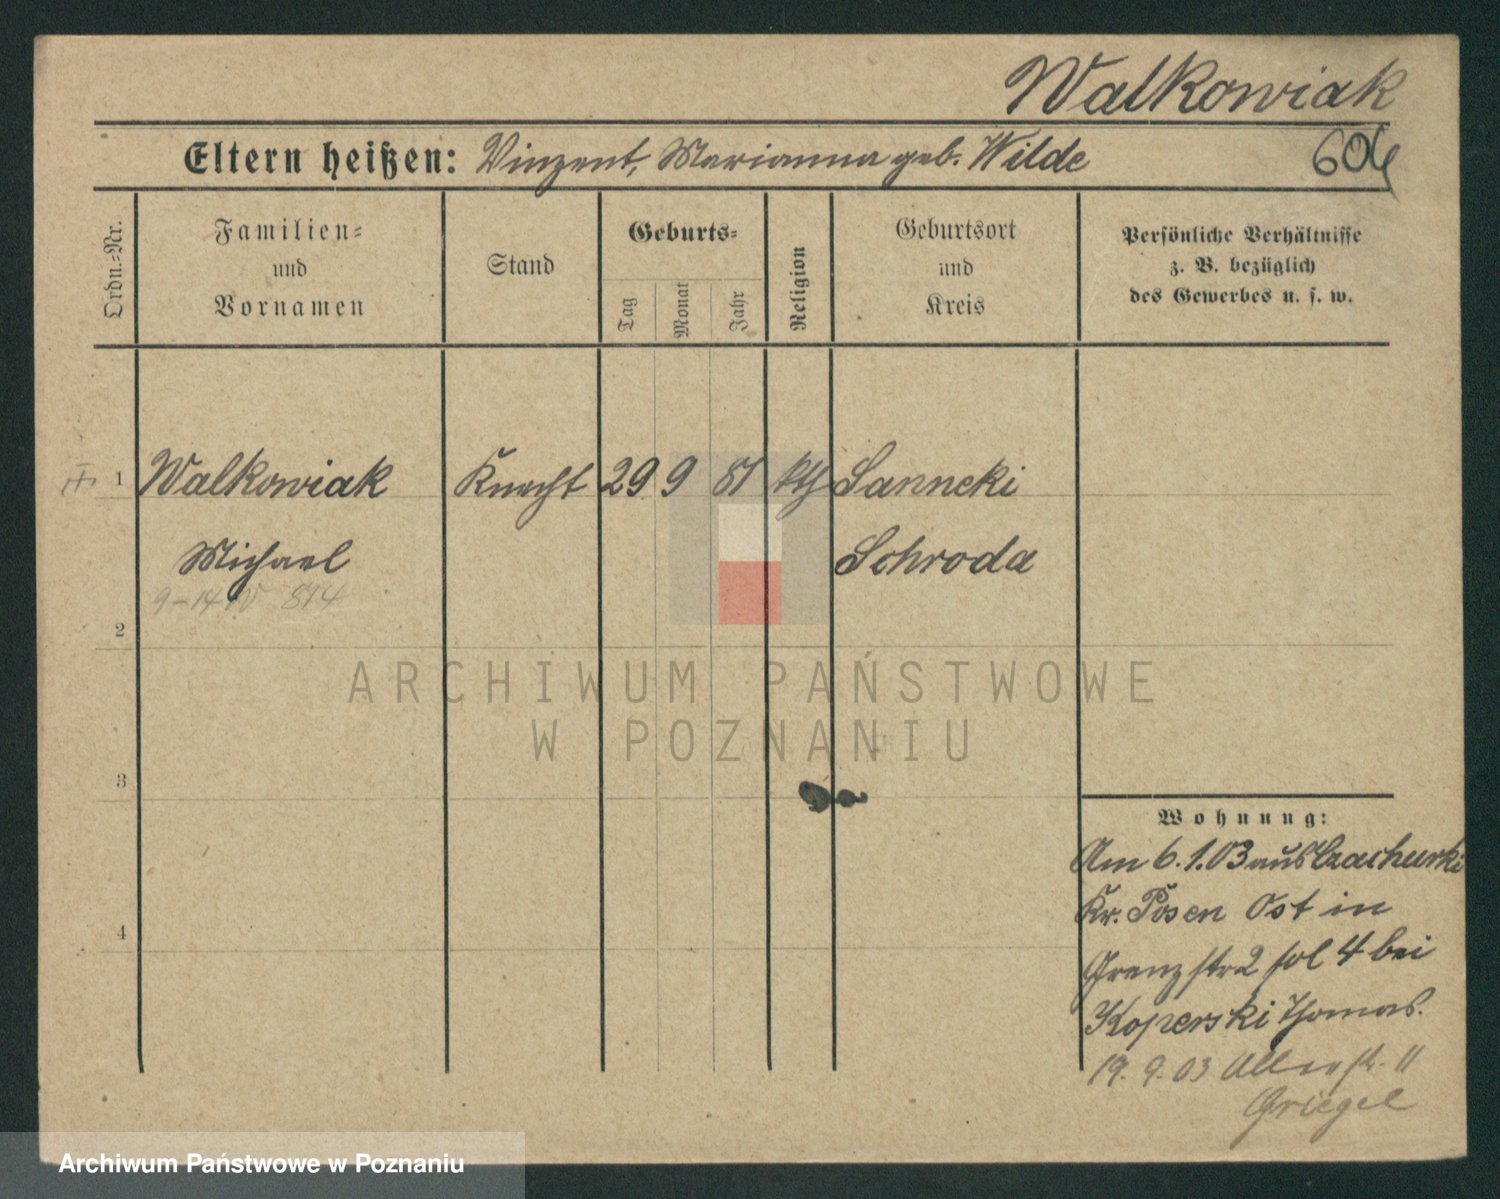 Walkowiak
Eltern heißen: Vinzent, Marianna geb. Wilde
Ordn.-Nr.
Familien-
und
Vornamen
Stand
Geburts-
Tag
Monat
Jahr
Religion
Geburtsort
und
Kreis
Persönliche Verhältnisse
z. B. bezüglich
des Gewerbes u. s. w.
1 Walkowiak Knecht 29 9 81 kth Sanncki
Michael Schroda
9-14 IV 814
2
3
4
ARCHIWUM PAŃSTWOWE
W POZNANIU
Wohnung:
Am 6.1.03 aus Czachurki
Kr. Posen Ost in
Grenzstr 2 fol 4 bei
Koperski Thomas.
19. 9. 03 11
Griegel
Archiwum Państwowe w Poznaniu